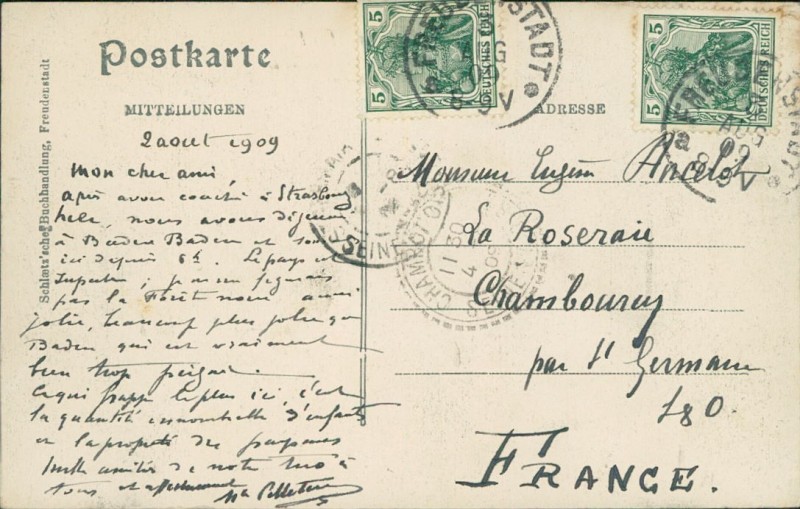 Postkarte
MITTEILUNGEN
ADRESSE
Schlaetz'sche Buchhandlung, Freudenstadt
5 DEUTSCHES REICH 5
5 DEUTSCHES REICH 5
FREUDENSTADT
2 aout 1909
Mon cher ami,
après avoir couché à Strasbourg
hier, nous avons déjeuné
à Baden Baden et sommes
ici depuis 6h. Le pays est
superbe; je ne me figurais
pas la Forêt noire aussi
jolie, beaucoup plus jolie que
Baden qui est vraiment
bien trop peigné.
Ce qui frappe le plus ici, c'est
la quantité d'enfants
et la propreté des paysannes
amitiés de notre trio à
tous et affectueusement
Pelletier
Monsieur Eugène Ancelot
La Roseraie
Chambourcy
par St Germain
S&O.
FRANCE.
CHAMBOURCY
11 30
4
09
SEINE